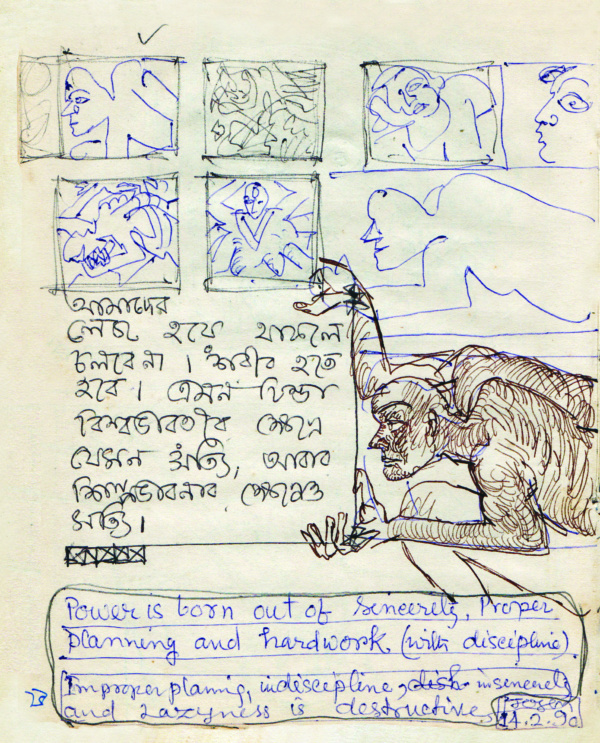 আমাদের
লেজ হয়ে থাকলে
চলবে না । শরীর হতে
হবে । এমন চিন্তা
বিশ্বভারতীর ক্ষেত্রে
যেমন সত্যি, আবার
শিল্পভাবনার ক্ষেত্রেও
সত্যি ।
Power is born out of Sincerely, Proper
Planning and hardwork. (with discipline)
Improper plannig, indiscipline, insincerely
and Lazyness is destructive,
14.2.90